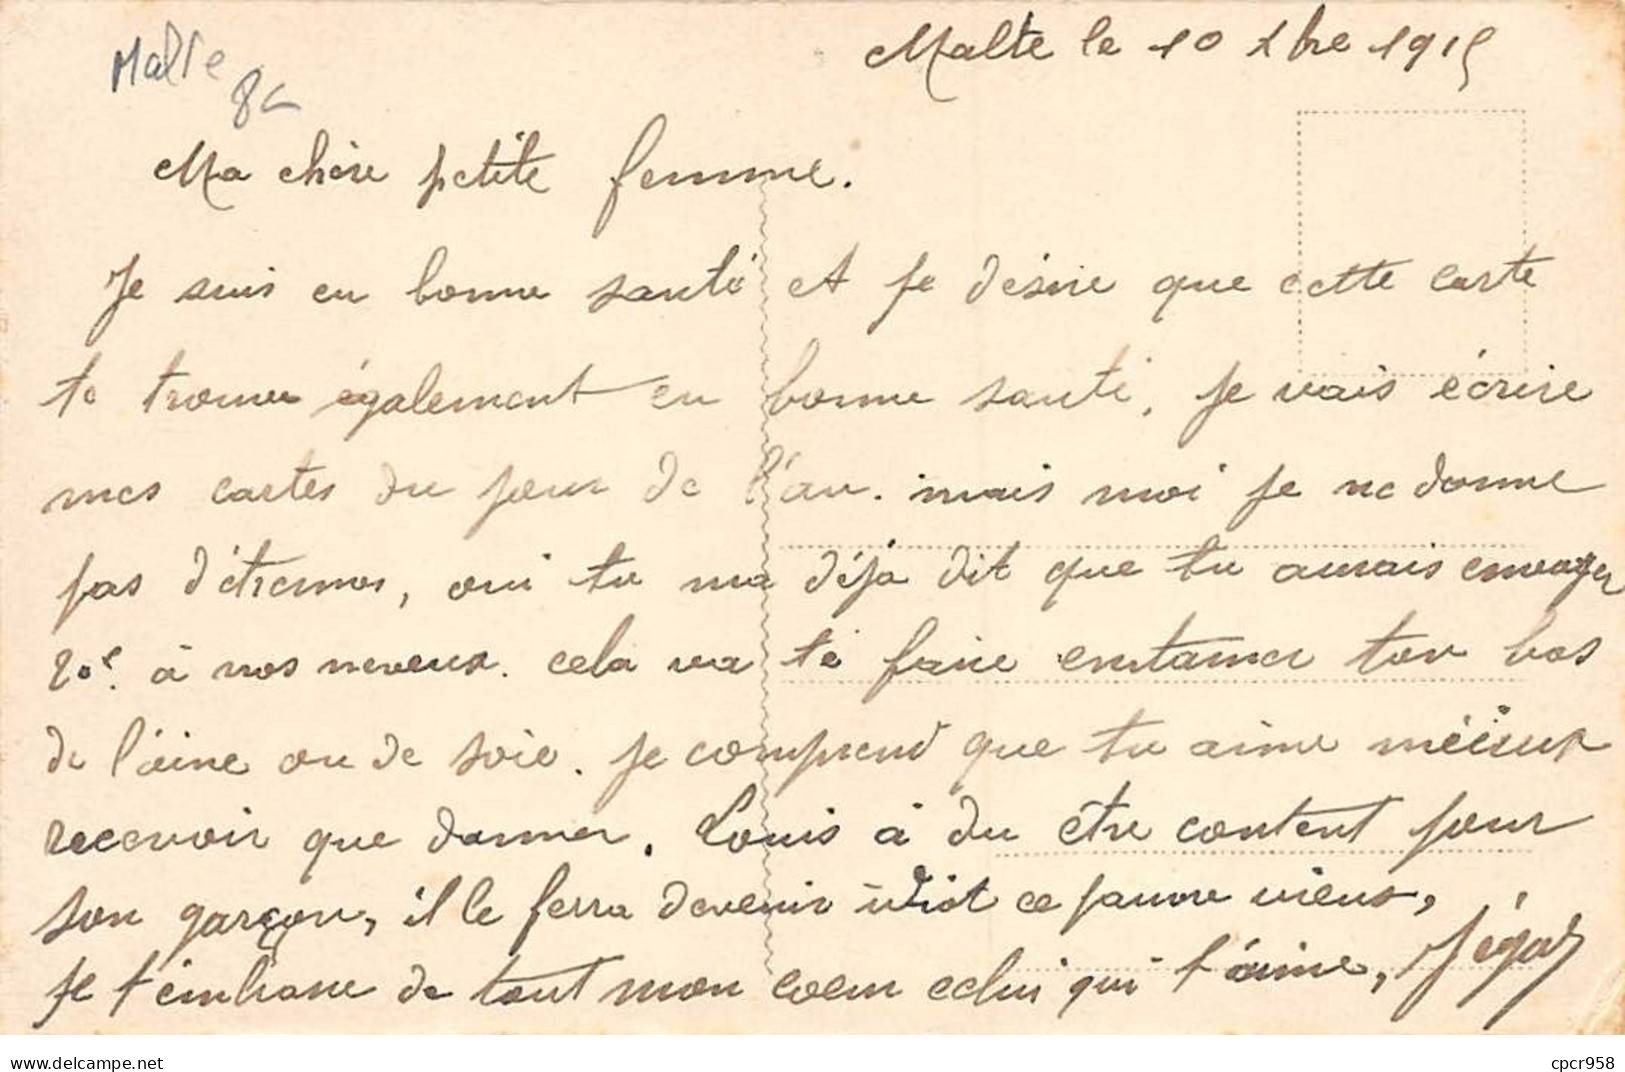 Malte
8€
Malte le 10 Xbre 1915
Ma chère petite femme.
Je suis en bonne santé et je désire que cette carte
te trouve également en bonne santé, je vais écrire
mes cartes du jour de l'an. mais moi je ne donne
pas d'étrennes, oui tu ma déja dit que tu aurais envoyer
20f. à nos neveux. cela va te faire entamer ton bas
de l'aine ou de soie. je comprend que tu aime méieux
recevoir que donner. Louis à du être content pour
son garçon, il le ferra devenir idiot ce pauvre vieux,
je t'embrasse de tout mon coeur celui qui t'aime,
cpcr958